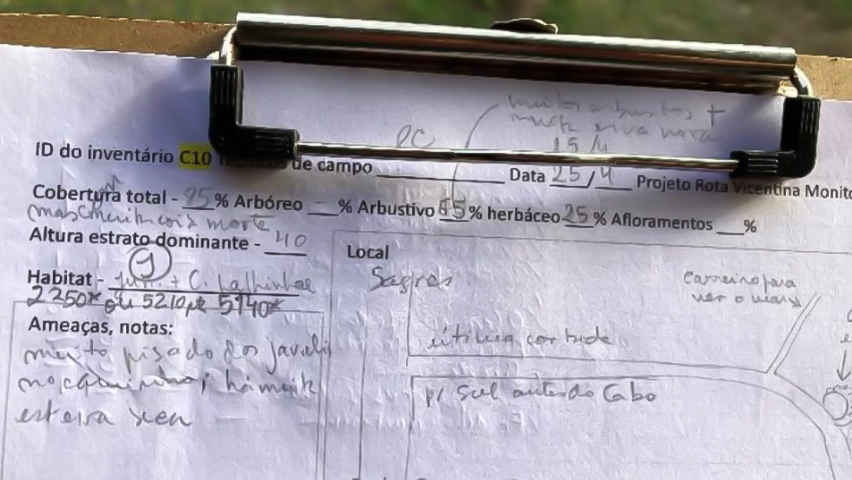 muitos arbustos +
muita erva nova
15/4
ID do inventário C10 Técnicos de campo PC Data 25/4 Projeto Rota Vicentina Monito
Cobertura total - 95% Arbóreo __% Arbustivo 65% herbáceo 25% Afloramentos __%
mas muita coisa morte
Altura estrato dominante - 40
1
Habitat - Jun. + C. palhinhae
2250* ou 5210pt 5140*
Ameaças, notas:
muito pisado dos javalis
no caminho; há muita
esteira seca
Local
Sagres
carreiro para
ver o mar
última cortada
p/ Sul antes do Cabo